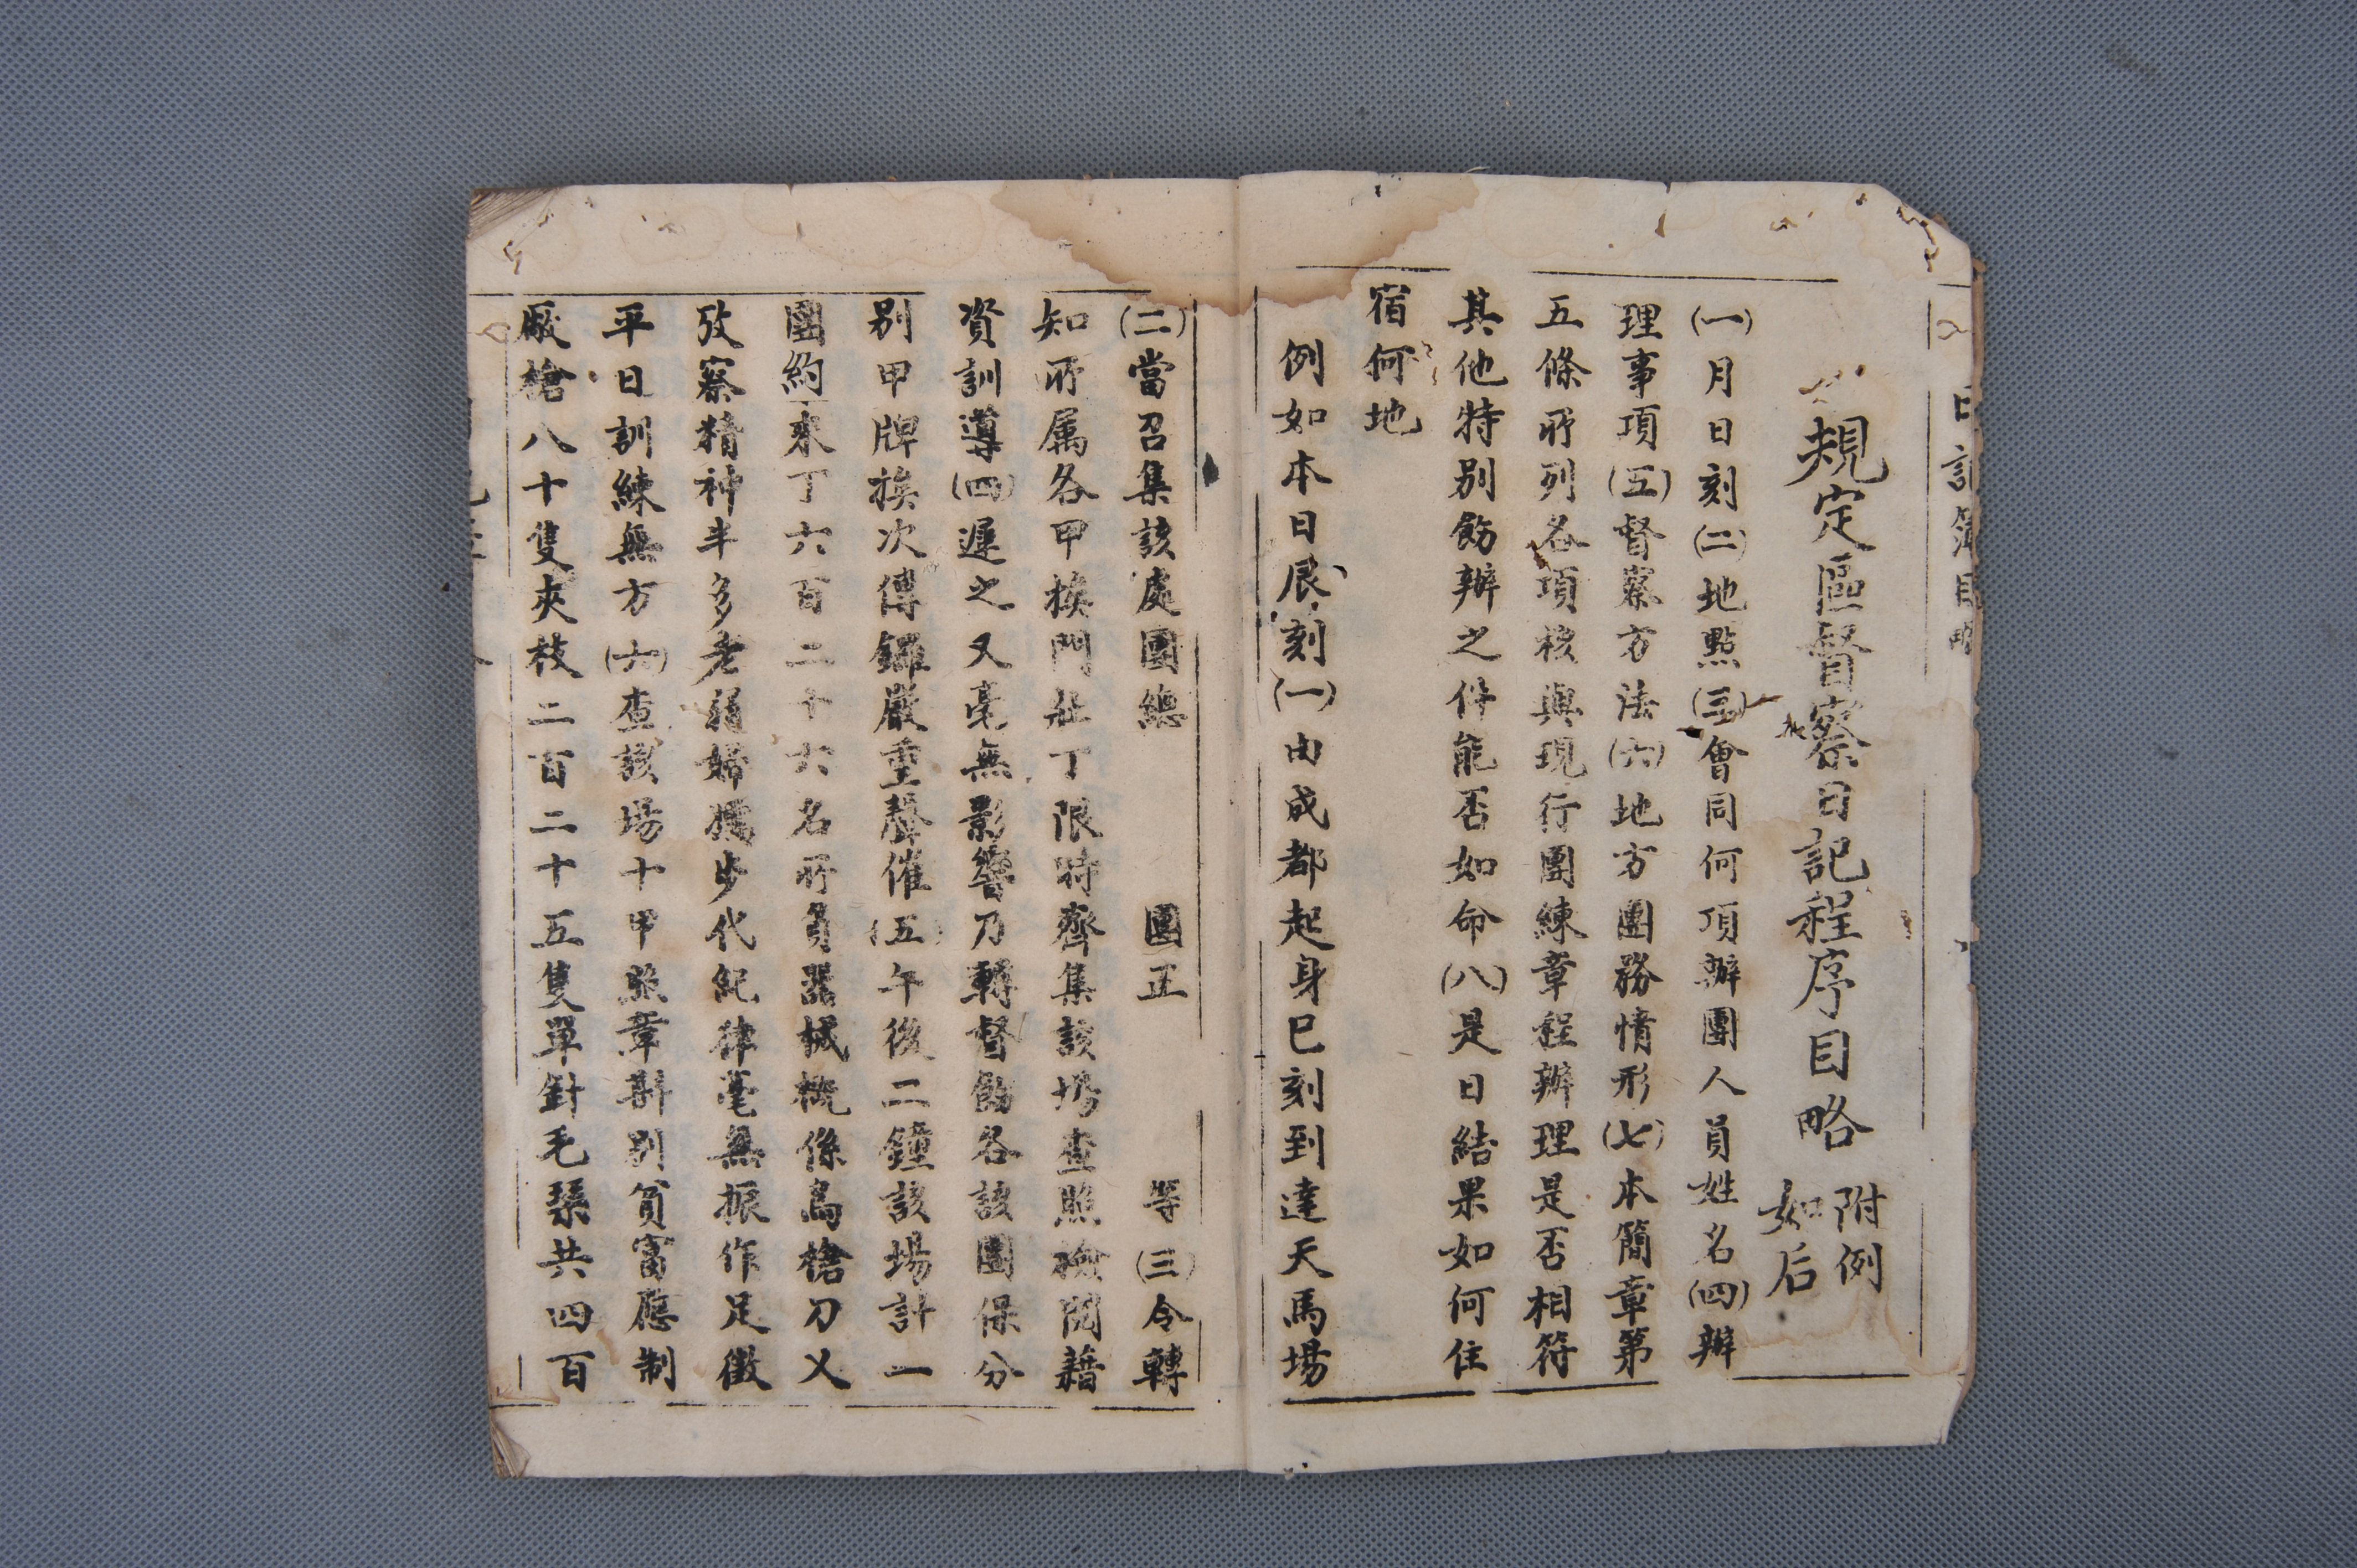 規定區督察日記程序目略 附例如后
(一)月日刻(二)地點(三)會同何項辦團人員姓名(四)辦
理事項(五)督察方法(六)地方團務情形(七)本簡章第
五條所列各項核與現行團練章程辦理是否相符
其他特別飭辦之件能否如命(八)是日結果如何住
宿何地
例如本日辰刻(一)由成都起身巳刻到達天馬場
(二)當召集該處團總 團正 等(三)令轉
知所属各甲挨門壯丁限時齊集該場查照檢閲藉
資訓導(四)遲之又毫無影響乃轉督飭各該團保分
别甲牌挨次傳鑼嚴重聲催(五)午後二鐘該場計一
團約來丁六百二十六名所負器械概係鳥槍刀乂
攷察精神半多老弱婦孺步代紀律毫無振作足徵
平日訓練無方(六)查該場十甲照章斟别貧富應制
廠槍八十隻夾枝二百二十五隻單針毛瑟共四百